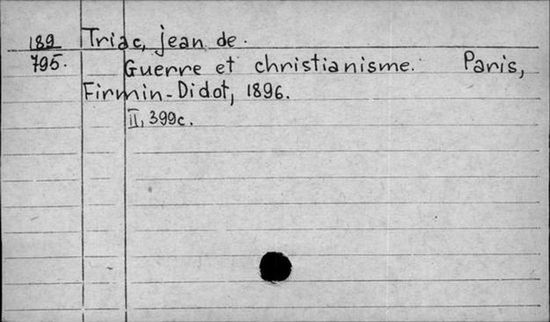 189 Triac, jean de.
795. Guerre et christianisme. Paris,
Firmin-Didot, 1896.
II, 399c.